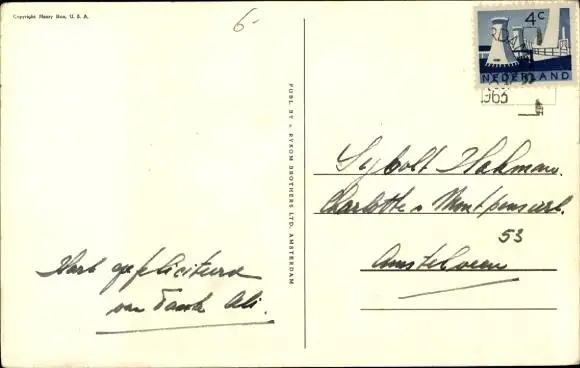 Copyright Henry Box, U.S.A.
6-
Hart. gefeliciteerd
van Tante Ali.
PUBL. BY - RYKOM BROTHERS LTD. AMSTERDAM
4c
NEDERLAND
1963
Sybolt Hakman.
Charlotte v Montpensierl.
53
Amstelveen